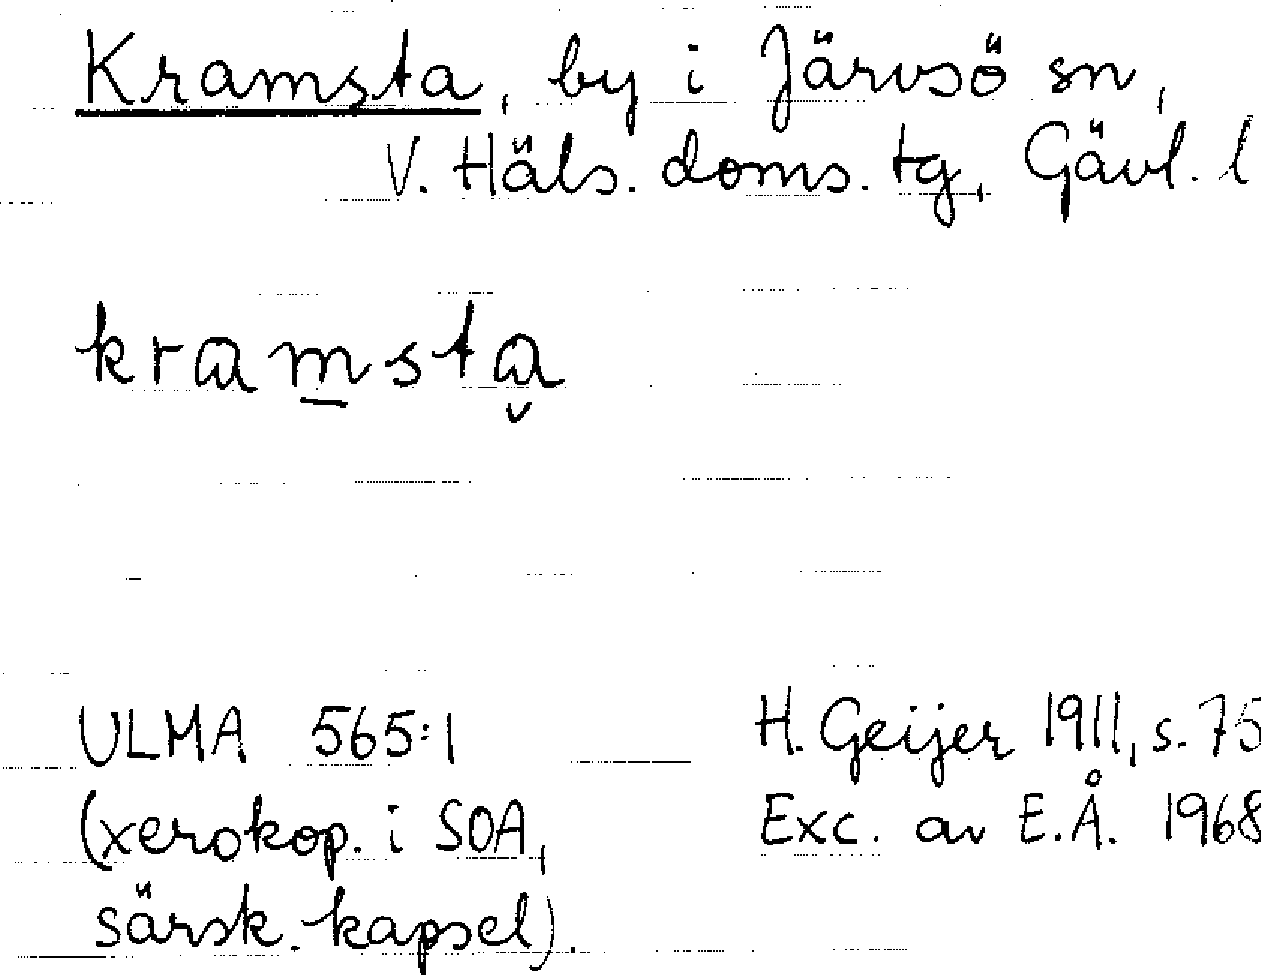 Kramsta, by i Järvsö sn,
V. Häls. doms. tg, Gävl. l
kramsta
ULMA 565:1
H. Geijer 1911, s. 75
(xerokop. i SOA,
Exc. av E.Å. 1968
särsk. kapsel).